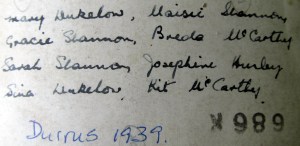 Mary Dukelow, Maisie Shannon,
Gracie Shannon, Breda McCarthy
Sarah Shannon, Josephine Hurley
Sina Dukelow, Kit McCarthy.
Durrus 1939.
X989